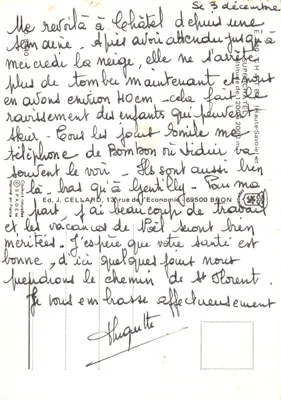 Le 3 décembre
Me revoilà à Châtel depuis une
semaine. Après avoir attendu jusqu'à
mercredi la neige, elle ne s'arrête
plus de tomber maintenant et nous
en avons environ 40 cm - cela fait le
ravissement des enfants qui peuvent
skier - Tous les jours Emile me
téléphone de Bombon où Isidur va
souvent le voir - Ils sont aussi bien
là-bas qu'à Gentilly - Pour ma
part, j'ai beaucoup de travail
Ed. J. CELLARD, 13, rue de l'Economie 69500 BRON
et les vacances de Noël seront bien
méritées. J'espère que votre santé est
bonne, d'ici quelques jours nous
prendrons le chemin de St Florent.
Je vous embrasse affectueusement
Huguette